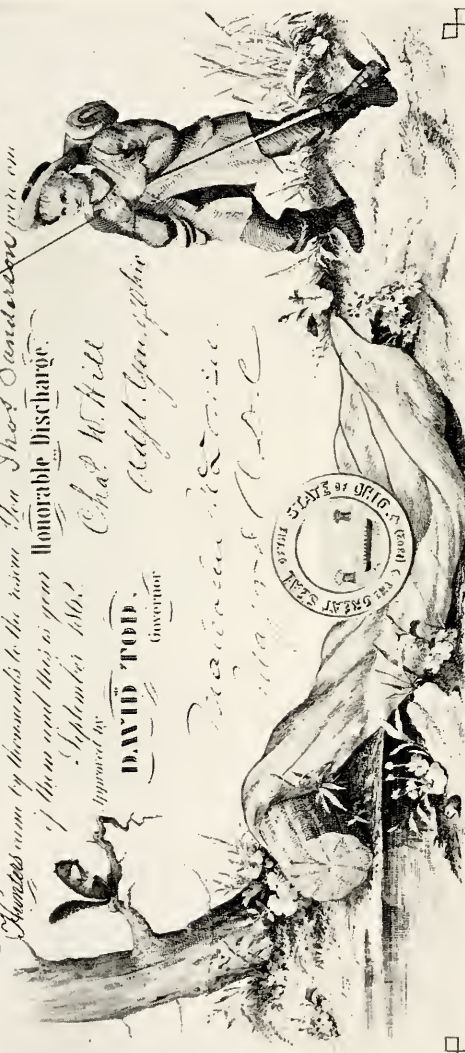 Hunters came by thousands to the rescue You Thos Sanderson were one
of them and this is your Honorable Discharge.
September 186
Chas W. Hill
Adjt. Gen. Ohio
Approved by
DAVID TOD,
Governor
THE GREAT SEAL OF THE STATE OF OHIO